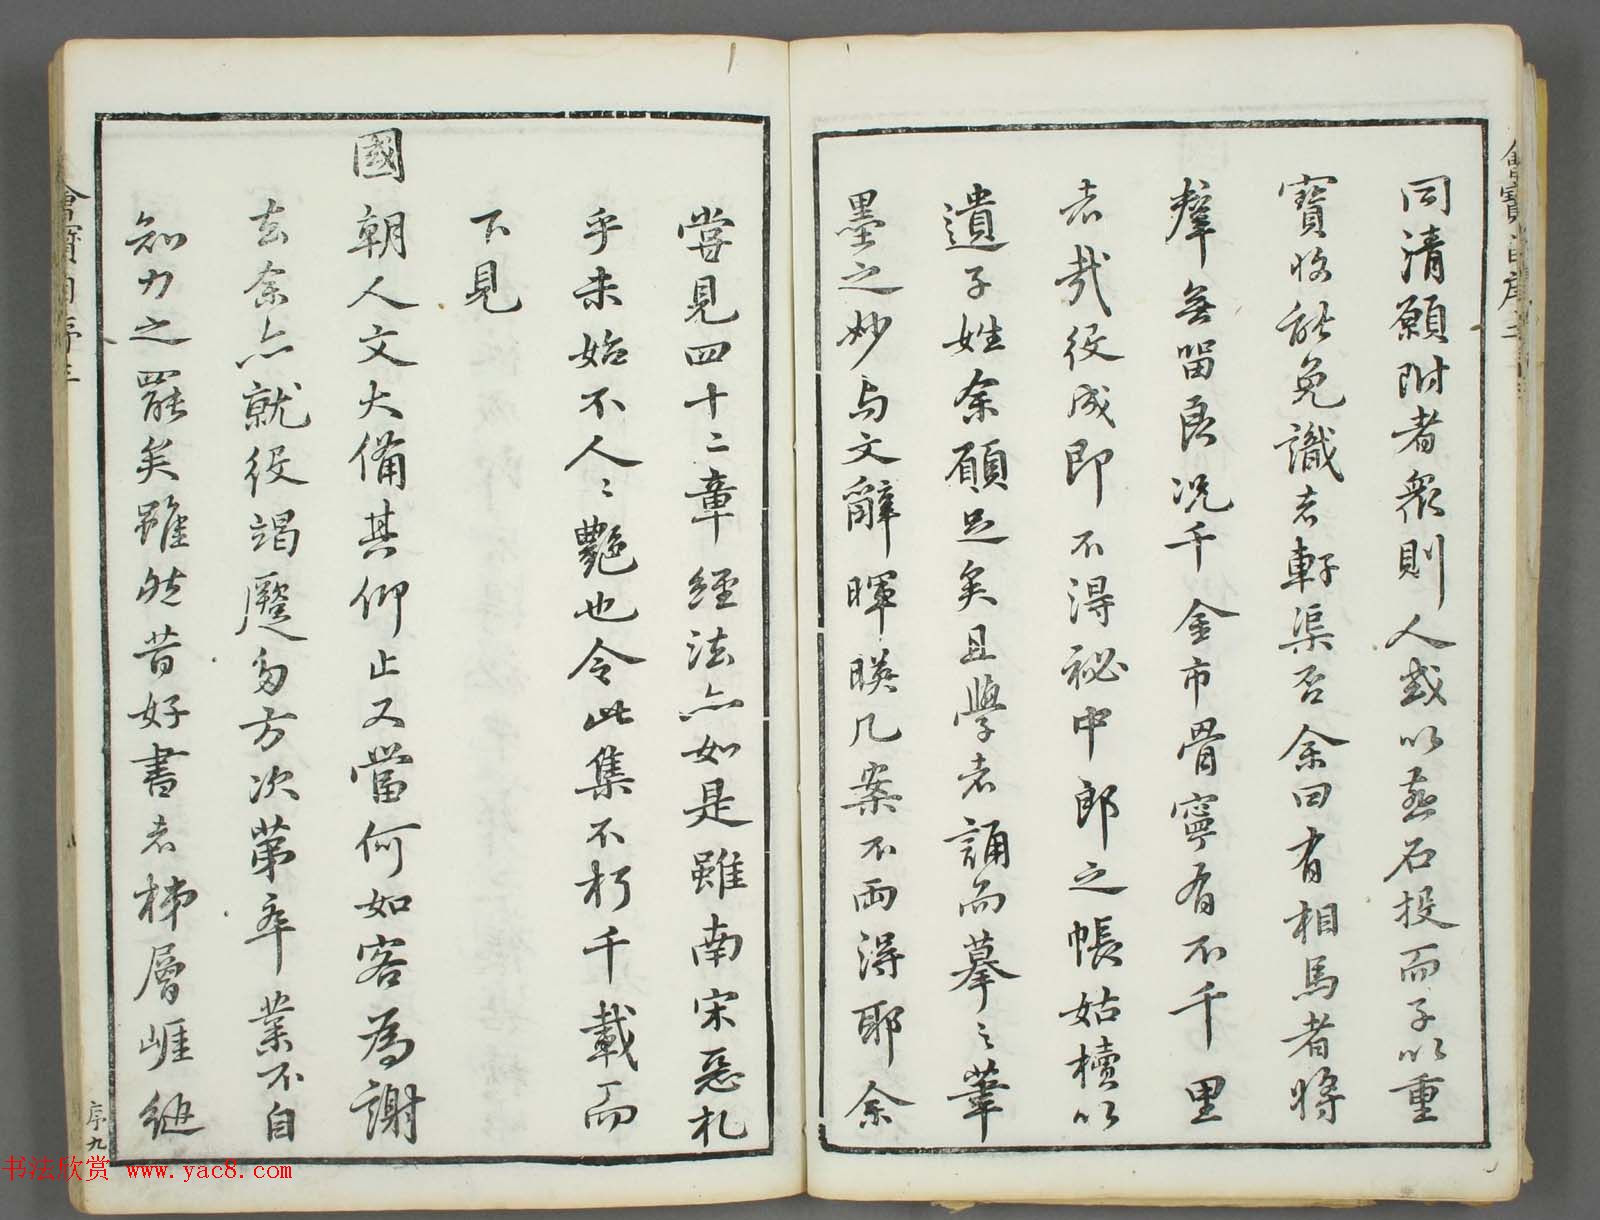 同清願附者衆則人或以燕石投而子以重
寶收能免識者軒渠否余曰有相馬者將
群無留良況千金市骨寧有不千里
者哉役成即不得祕中郎之帳姑櫝以
遺子姓余願足矣且學者誦而摹之筆
墨之妙与文辭暉暎几案不兩得耶余
嘗見四十二章經法亦如是雖南宋惡札
乎未始不人人艷也令此集不朽千載而
下見
國朝人文大備其仰止又當何如客為謝
去余亦就役竭蹷多方次第卒業不自
知力之罷矣雖然昔好書者梯層崕縋
序九
书法欣赏 www.yac8.com